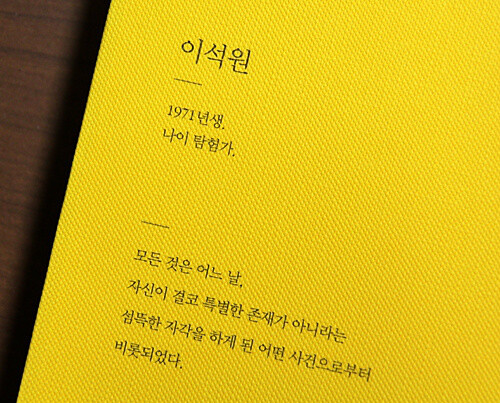 이석원
1971년생.
나이 탐험가.
모든 것은 어느 날,
자신이 결코 특별한 존재가 아니라는
섬뜩한 자각을 하게 된 어떤 사건으로부터
비롯되었다.